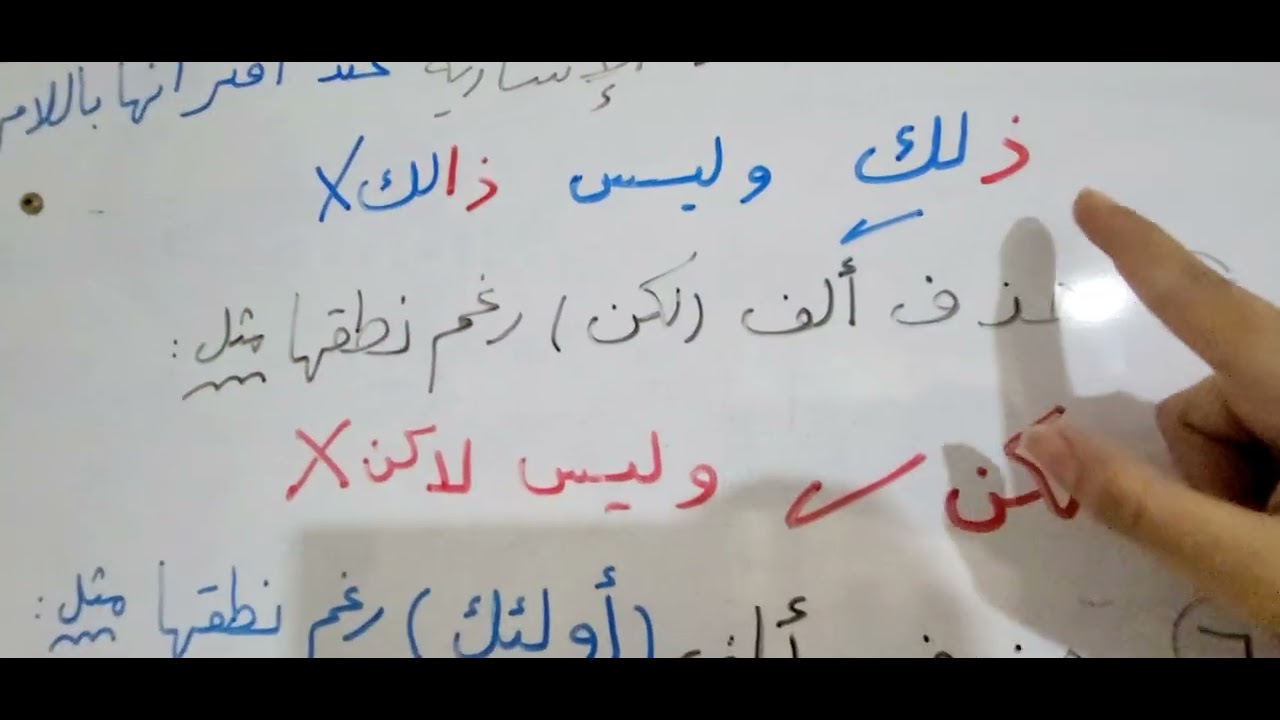 الإشارية عند اقترانها باللام
ذلك وليس ذالك X
ألف (لكن) رغم نطقها مثل :
وليس لاكن X
ألف (أولئك) رغم نطقها مثل :